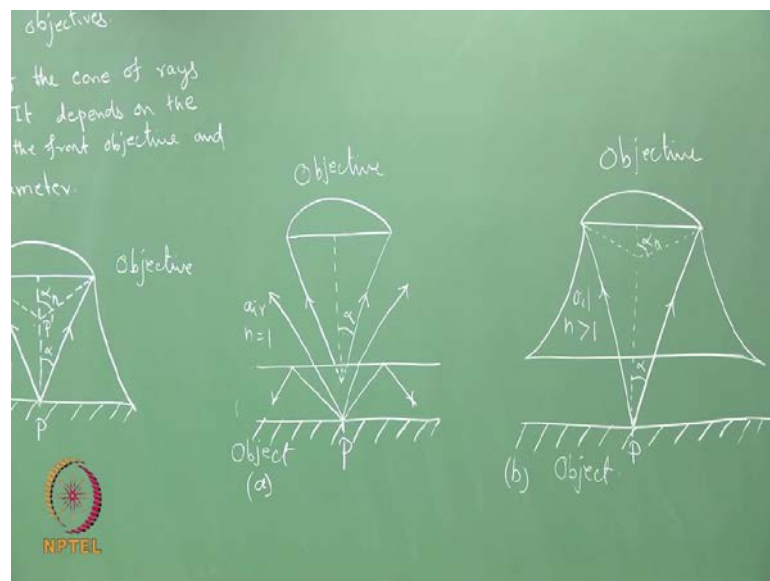 objectives.
the cone of rays
It depends on the
the front objective and
Objective
n
P'
α
P
Objective
air
n=1
α
Object
P
(a)
Objective
α
oil
n>1
α
P
(b) Object
NPTEL